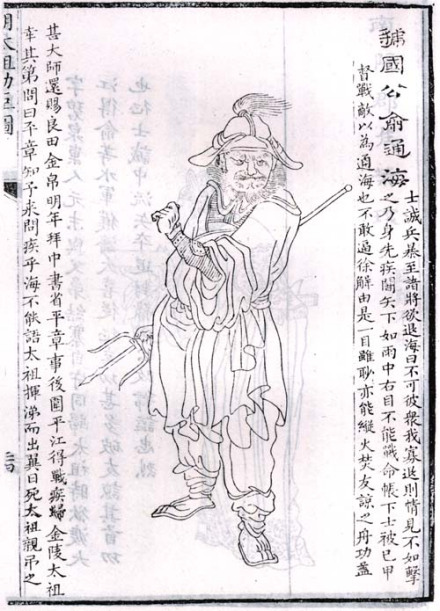 虢國公俞通海
士誠兵暴至諸將欲退海曰不可彼衆我寡退則情見不如擊
之乃身先疾鬪矢下如雨中右目不能戰命帳下士被己甲
督戰敵以為通海也不敢逼徐解由是一目雖眇亦能縱火焚友諒之舟功蓋
甚大師還賜良田金帛明年拜中書省平章事後圍平江得戰疾歸金陵太祖
幸其第問曰平章知予來問疾乎海不能語太祖揮涕而出翼日死太祖親弔之
明太祖功臣圖